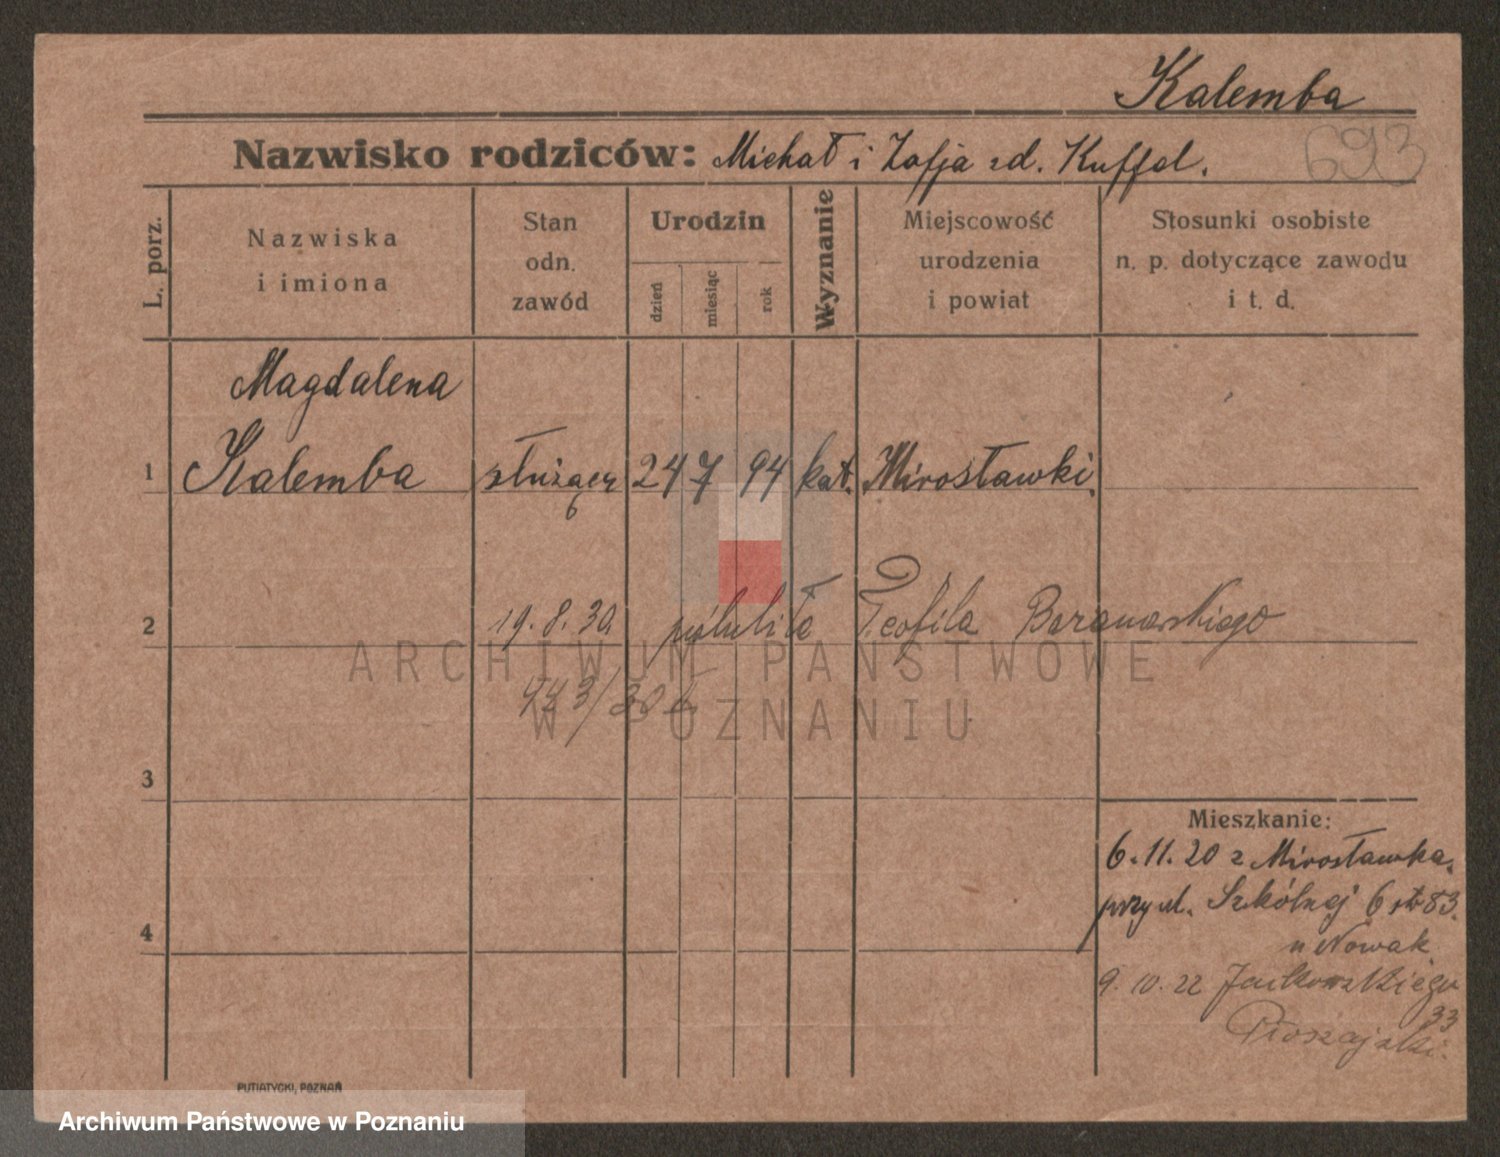 Kalemba
693
Nazwisko rodziców: Michał i Zofja zd. Kuffel.
L. porz.
Nazwiska i imiona
Stan odn. zawód
Urodzin
dzień
miesiąc
rok
Wyznanie
Miejscowość urodzenia i powiat
Stosunki osobiste n. p. dotyczące zawodu i t. d.
Magdalena
1 Kalemba służąca 24 7 94 kat. Mirosławki.
2 19.8.30 poślubiła Teofila Baranowskiego
443/30
3
Mieszkanie:
6.11.20 z Mirosławka.
przy ul. Szkólnej 6 st 83.
u Nowak
4
9.10.22 Jackowskiego
33
Płoszajski.
PUTIATYCKI, POZNAŃ
ARCHIWUM PAŃSTWOWE
W POZNANIU
Archiwum Państwowe w Poznaniu